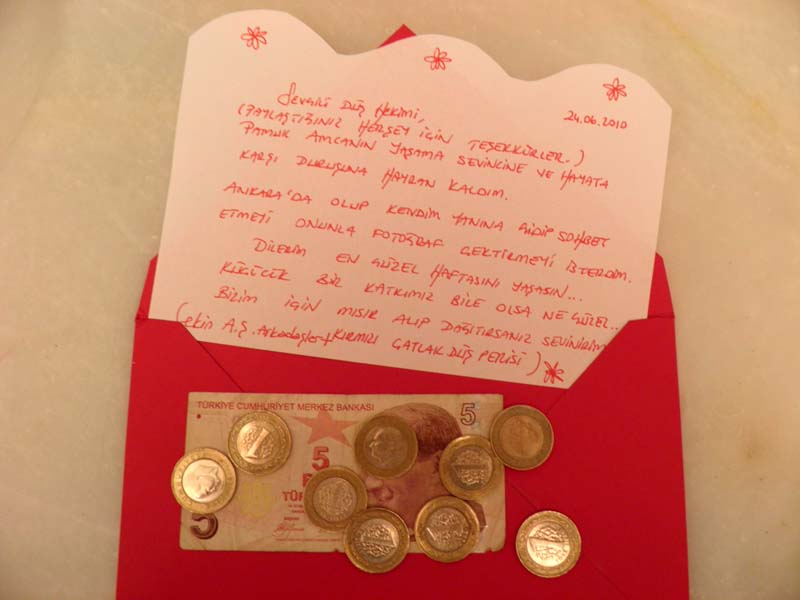 24.06.2010
SEVGİLİ DÜŞ HEKİMİ,
(PAYLAŞTIĞINIZ HERŞEY İÇİN TEŞEKKÜRLER.)
PAMUK AMCANIN YAŞAMA SEVİNCİNE VE HAYATA
KARŞI DURUŞUNA HAYRAN KALDIM.
ANKARA'DA OLUP KENDİM YANINA GİDİP SOHBET
ETMEYİ ONUNLA FOTOĞRAF ÇEKTİRMEYİ İSTERDİM.
DİLERİM EN GÜZEL HAFTASINI YAŞASIN...
KÜÇÜCÜK BİR KATKIMIZ BİLE OLSA NE GÜZEL..
BİZİM İÇİN MISIR ALIP DAĞITIRSANIZ SEVİNİRİM
(ekin A.Ş. Arkadaşlar+KIRMIZI ÇATLAK DÜŞ PERİSİ)
TÜRKİYE CUMHURİYET MERKEZ BANKASI
5
5
TÜR
5